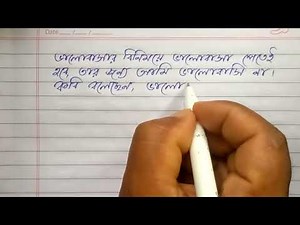 ভালোবাসার বিনিময়ে ভালোবাসা পেতেই
হবে তার জন্যে আমি ভালোবাসি না।
কবি বলেছেন, ভালো